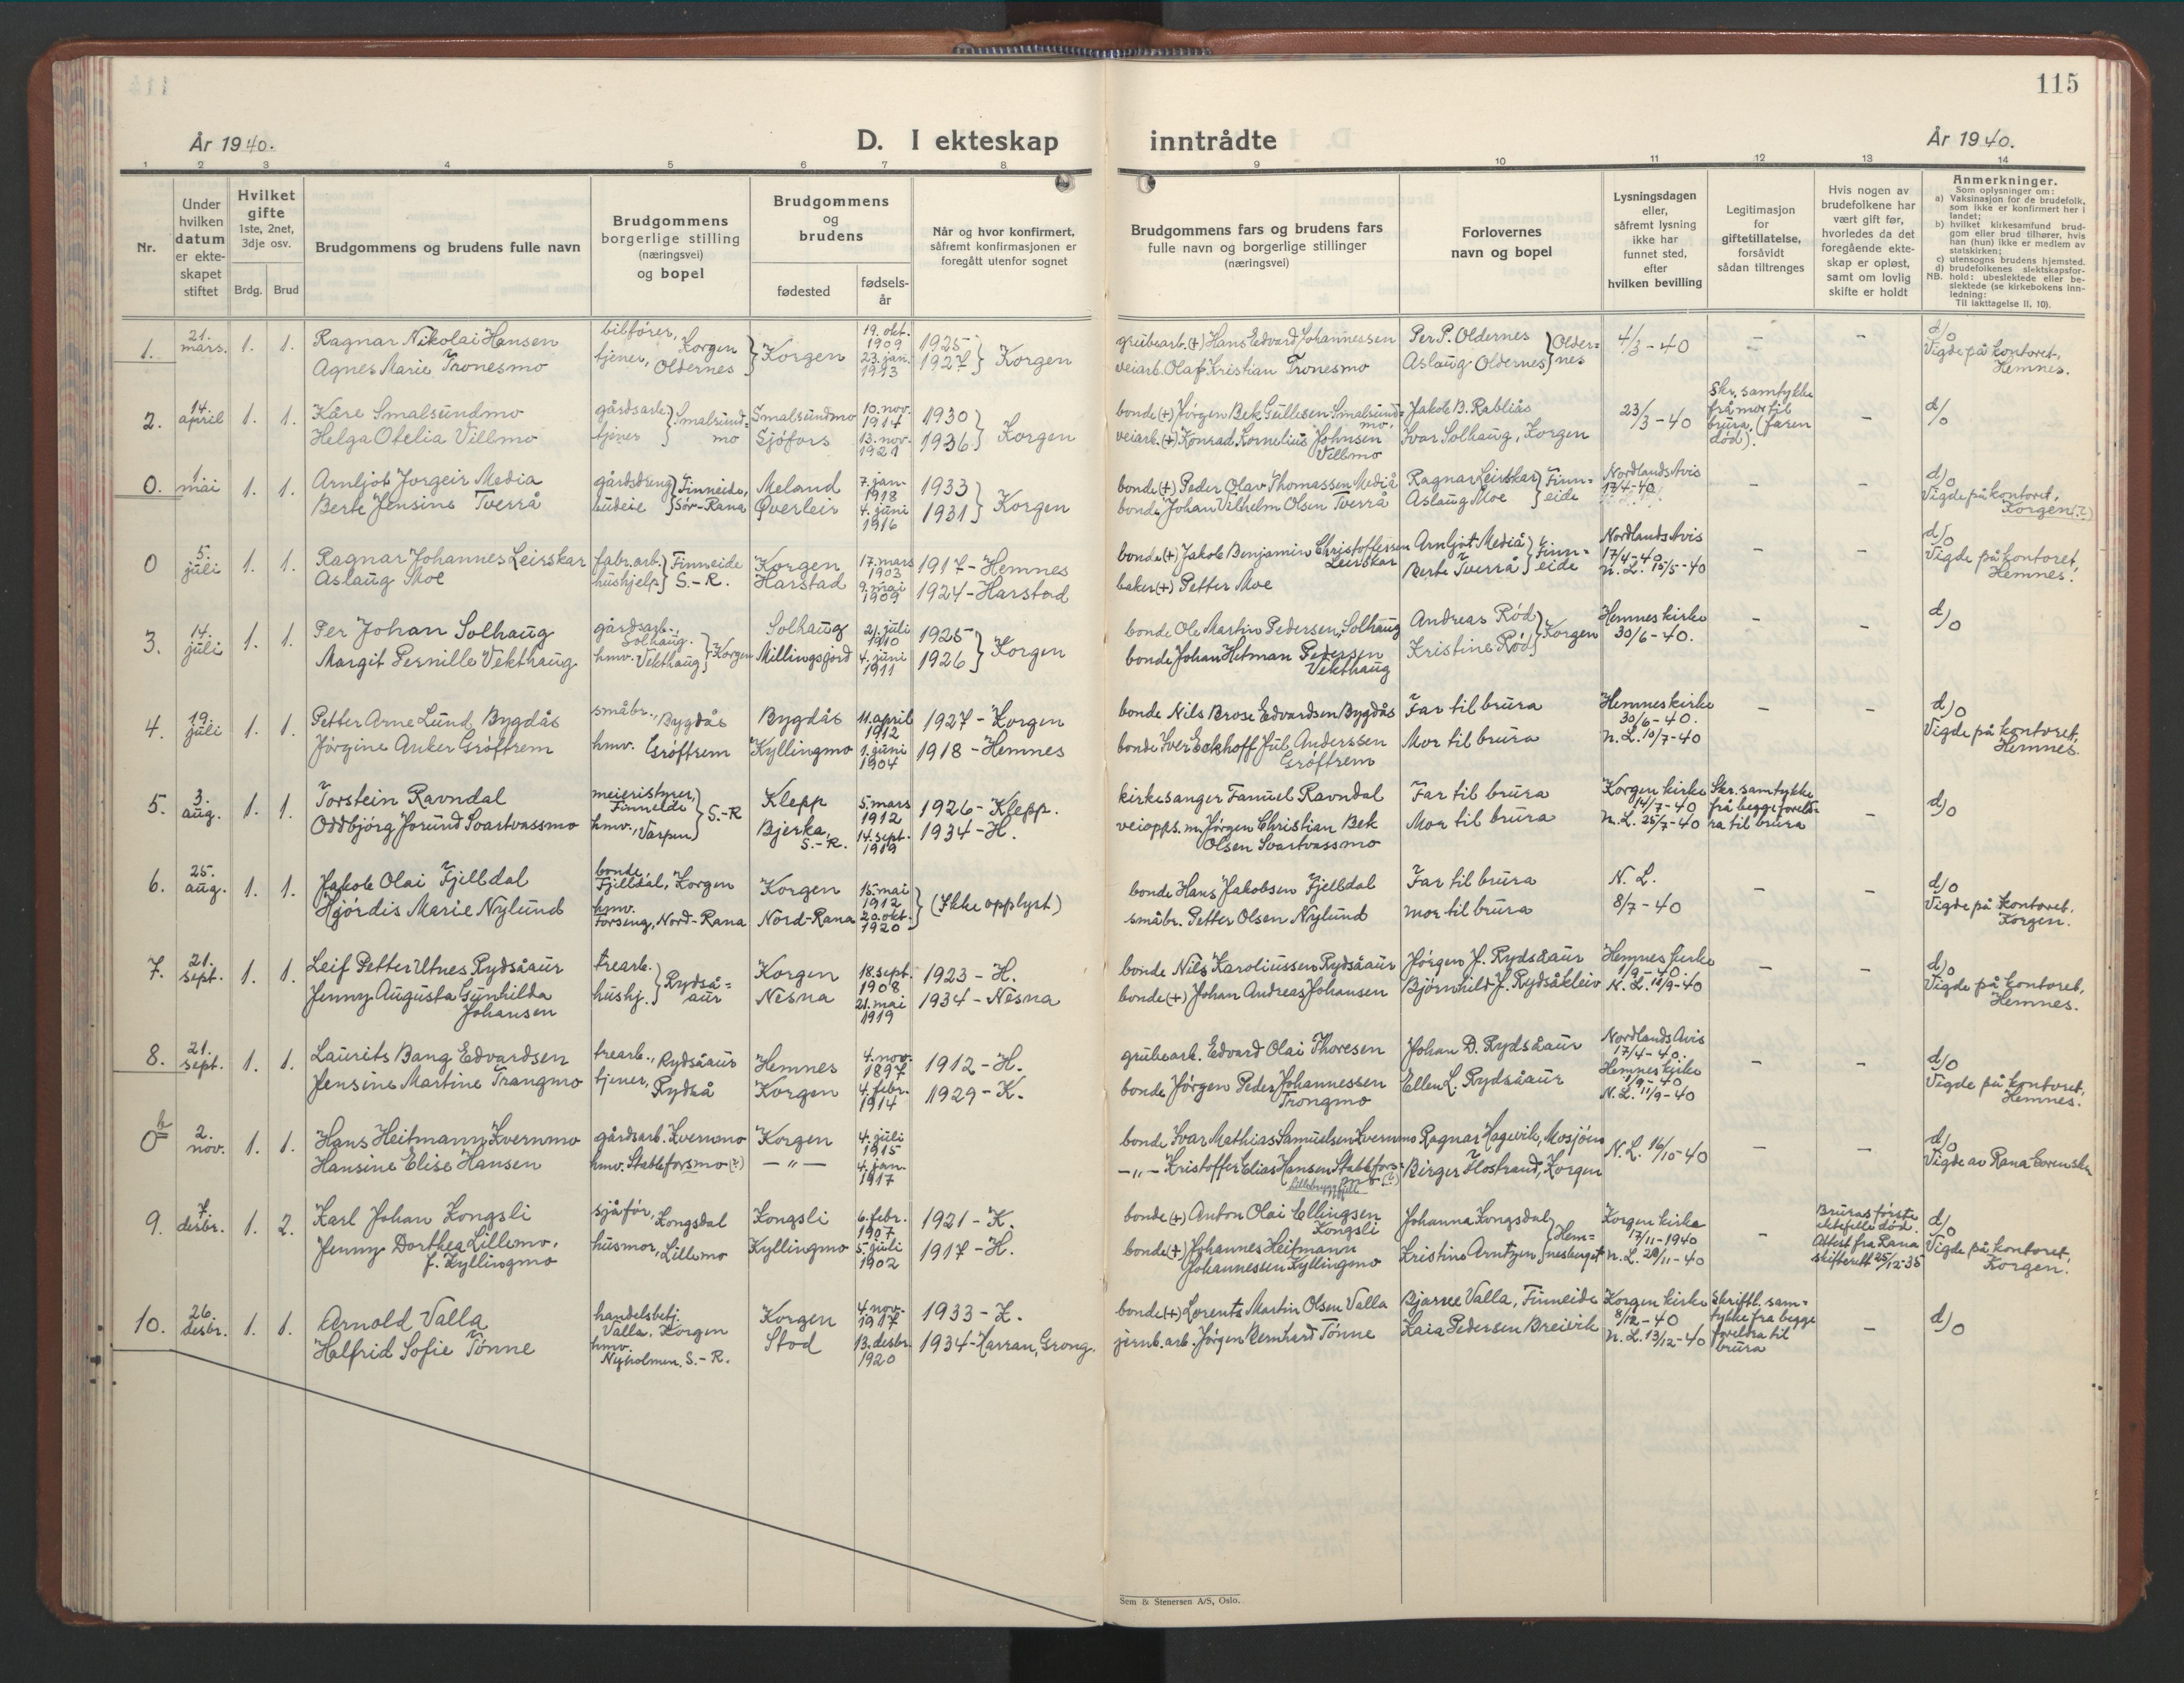 115
År 1940.
D. I ekteskap inntrådte
År 1940.
1 2 3 4 5 6 7 8 9 10 11 12 13 14
Nr.
Under hvilken datum er ekteskapet stiftet
Hvilket gifte 1ste, 2net, 3dje osv.
Brdg. Brud
Brudgommens og brudens fulle navn
Brudgommens borgerlige stilling (næringsvei) og bopel
Brudgommens og brudens
fødested
fødselsår
Når og hvor konfirmert, såfremt konfirmasjonen er foregått utenfor sognet
Brudgommens fars og brudens fars fulle navn og borgerlige stillinger (næringsvei)
Forlovernes navn og bopel
Lysningsdagen eller, såfremt lysning ikke har funnet sted, efter hvilken bevilling
Legitimasjon for giftetillatelse, forsåvidt sådan tiltrenges
Hvis nogen av brudefolkene har vært gift før, hvorledes da det foregående ekteskap er opløst, samt om lovlig skifte er holdt
Anmerkninger.
Som oplysninger om:
a) Vaksinasjon for de brudefolk, som ikke er konfirmert her i landet;
b) hvilket kirkesamfund brudgom eller brud tilhører, hvis han (hun) ikke er medlem av statskirken;
c) utensogns brudens hjemsted.
d) brudefolkenes slektskapsforhold: ubeslektede eller beslektede (se kirkebokens innledning:
NB. Til iakttagelse II, 10).
1. 21. mars. 1. 1. Ragnar Nikolai Hansen bilfører, Korgen Korgen 19. okt. 1909 1925 Korgen grubearb. (+) Hans Edvard Johannessen Per P. Oldernes Oldernes 4/3-40 - - d/o
Agnes Marie Tronesmo tjener, Oldernes 23. jan. 1913 1927 veiarb. Olaf Kristian Tronesmo Aslaug Oldernes Vigde på kontoret, Hemnes.
2. 14. april 1. 1. Kåre Smalsundmo gårdsarb. Smalsundmo Smalsundmo 10. nov. 1914 1930 Korgen bonde (+) Jørgen Bek Gullesen Smalsundmo, Jakob B. Rabliås 23/3-40 Skr. samtykke frå mor til brura, (faren død). - d/o
Helga Otelia Villmo tjener Sjøfors 13. nov. 1921 1936 veiarb. (+) Konrad Kornelius Johnsen Villmo Ivar Solhaug, Korgen
0. 1 mai 1. 1. Arnljot Jorgeir Media gårdsdreng Finneide, Sør-Rana Meland 7. jan. 1918 1933 Korgen bonde (+) Peder Olav Thomassen Mediå Ragnar Leirskar Finneide Nordlands Avis 17/4-40 - - d/o
Berte Jensine Tverrå budeie Øverleir 4. juni 1916 1931 bonde Johan Vilhelm Olsen Tverrå Aslaug Moe Vigde på kontoret, Korgen (?)
0 5. juli 1. 1. Ragnar Johannes Leirskar fabr.arb. Finneide S.-R. Korgen 17. mars 1903 1917-Hemnes bonde (+) Jakob Benjamin Christoffersen Leirskar Arnljot Mediå Finneide Nordlands Avis 17/4-40 - - d/o
Aslaug Moe hushjelp Harstad 9. mai 1909 1924-Harstad baker (+) Petter Moe Berte Tverrå N. L. 15/5-40 Vigde på kontoret, Hemnes.
3. 14. juli 1. 1. Per Johan Solhaug gårdsarb., Solhaug. Korgen Solhaug 21. juli 1910 1925 Korgen bonde Ole Martin Pedersen, Solhaug Andreas Rød Korgen Hemnes kirke 30/6-40. - - d/o
Margit Pernille Vekthaug hmv. Vekthaug Millingsjord 4. juni 1911 1926 bonde Johan Hetman Pedersen Vekthaug Kristine Rød
4. 19. juli 1. 1. Petter Arne Lund Bygdås småbr., Bygdås Bygdås 11. april 1912 1927-Korgen bonde Nils Brose Edvardsen Bygdås Far til brura Hemnes kirke 30/6-40. - - d/o
Jørgine Anker Grøftrem hmv. Grøftrem Kyllingmo 1. juni 1904 1918-Hemnes bonde Iver Eckhoff Jul Anderssen Grøftrem Mor til brura N. L. 10/7-40 Vigde på kontoret, Hemnes.
5. 3. aug. 1. 1. Torstein Ravndal meieristyrer, Finneide S.-R Klepp 5. mars 1912 1926-Klepp. kirkesanger Fanuel Ravndal Far til brura Korgen kirke 14/7-40 Skr. samtykke frå begge foreldra til brura - d/o
Oddbjørg Jorund Svartvassmo hmv., Varpen Bjerka, S.-R. 14. sept. 1919 1934-H. veiopps.m. Jørgen Christian Bek Olsen Svartvassmo Mor til brura N. L. 25/7-40
6. 25. aug. 1. 1. Jakob Olai Fjelldal bonde, Fjelldal, Korgen Korgen 15. mai 1912 (Ikke opplyst) bonde Hans Jakobsen Fjelldal Far til brura N. L. 8/7-40 - - d/o
Hjørdis Marie Nylund hmv. Torseng, Nord-Rana Nord-Rana 20. okt. 1920 småbr. Petter Olsen Nylund mor til brura Vigde på kontoret, Korgen.
7. 21. sept. 1. 1. Leif Petter Utnes Rydsåaur trearb. Rydsåaur Korgen 18. sept. 1908 1923-H. bonde Nils Karoliussen Rydsåaur Jørgen J. Rydsåaur Hemnes kirke 1/9-40. - - d/o
Jenny Augusta Gunhilda Johansen hushj. Nesna 21. mai 1919 1934-Nesna bonde (+) Johan Andreas Johansen Bjørnhild J. Rydsåkleiv N. L. 11/9-40 Vigde på kontoret, Hemnes.
8. 21. sept. 1. 1. Laurits Bang Edvardsen trearb., Rydsåaur Hemnes 4. nov. 1897 1912-H. grubearb. Edvard Olai Thoresen Johan D. Rydsåaur Nordlands Avis 17/4-40. Hemnes kirke 1/9-40 - - d/o
Jensine Martine Trangmo tjener, Rydså Korgen 4. febr. 1914 1929-K. bonde Jørgen Peder Johannessen Trongmo Ellen L. Rydsåaur N. L. 11/9-40 Vigde på kontoret, Hemnes.
0 2. nov. 1. 1. Hans Heitmann Kvernmo gårdsarb. Kvernmo Korgen 4. juli 1915 bonde Ivar Mathias Samuelsen Kvernmo Ragnar Hagevik, Mosjøen N. L. 16/10-40 - - d/o
Hansine Elise Hansen hmv. Stabbforsmo (?) -"- 4. jan. 1917 -"- Kristoffer Elias Hansen Stabbforsmo (?) Birger Flostrand, Korgen Vigde av Rana Sorenskr.
9. 7. desbr. 1. 2. Karl Johan Kongsli sjåfør, Kongsdal Kongsli 6. febr. 1907 1921-K. bonde (+) Anton Olai Ellingsen Kongsli Johanna Kongsdal Hemnesberget Korgen kirke 17/11-1940 - Bruras første ektefelle død. Attest fra Rana skifterett 25/12-35 d/o
Jenny Dorthea Lillemo, f. Kyllingmo husmor, Lillemo Kyllingmo 5. juli 1902 1917-H. bonde (+) Johannes Heitmann Johannessen Kyllingmo Kristine Arntzen N. L. 28/11-40 Vigde på kontoret, Korgen.
10. 26. desbr. 1. 1. Arnold Valla handelsbetj. Valla, Korgen Korgen 4. nov. 1917 1933-K. bonde (+) Lorents Martin Olsen Valla Bjarne Valla, Finneide Korgen kirke 8/12-40 Skriftl. samtykke fra begge foreldra til brura - d/o
Halfrid Sofie Tønne hmv. Nyholmen, S.-R. Stod 13. desbr. 1920 1934-Harran, Grong. jernb.arb. Jørgen Bernhard Tønne Kaia Pedersen Breivik N. L. 13/12-40
Sem & Stenersen A/S, Oslo.